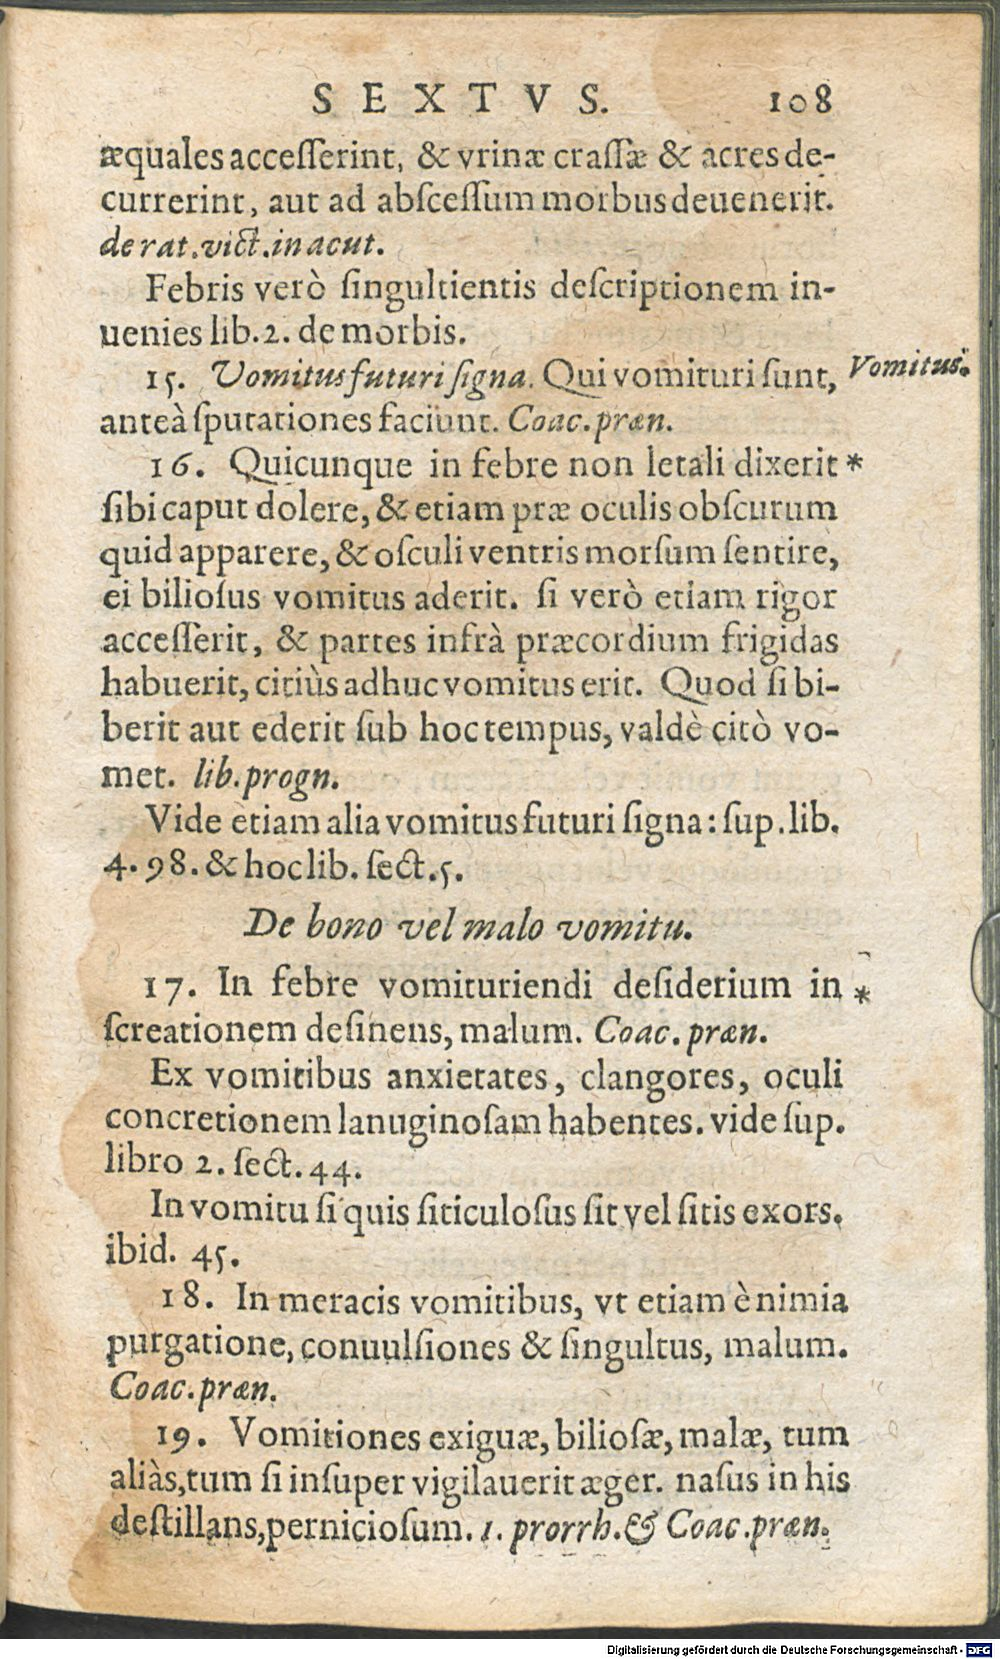 SEXTVS. 108
æquales accesſerint, & vrinæ craſſæ & acres de-
currerint, aut ad abſceſſum morbus deuenerit.
de rat. vict. in acut.
Febris verò ſingultientis deſcriptionem in-
uenies lib. 2. de morbis.
15. Vomitus futuri ſigna. Qui vomituri ſunt, Vomitus.
anteà ſputationes faciunt. Coac. præn.
16. Quicunque in febre non letali dixerit *
ſibi caput dolere, & etiam præ oculis obſcurum
quid apparere, & oſculi ventris morſum ſentire,
ei bilioſus vomitus aderit. ſi verò etiam rigor
acceſſerit, & partes infrà præcordium frigidas
habuerit, citiùs adhuc vomitus erit. Quod ſi bi-
berit aut ederit ſub hoc tempus, valdè citò vo-
met. lib. progn.
Vide etiam alia vomitus futuri ſigna: ſup. lib.
4. 98. & hoc lib. ſect. 5.
De bono vel malo vomitu.
17. In febre vomituriendi deſiderium in *
ſcreationem deſinens, malum. Coac. præn.
Ex vomitibus anxietates, clangores, oculi
concretionem lanuginoſam habentes. vide ſup.
libro 2. ſect. 44.
In vomitu ſi quis ſiticuloſus ſit vel ſitis exors.
ibid. 45.
18. In meracis vomitibus, vt etiam è nimia
purgatione, conuulſiones & ſingultus, malum.
Coac. præn.
19. Vomitiones exiguæ, bilioſæ, malæ, tum
aliàs, tum ſi inſuper vigilauerit æger. naſus in his
deſtillans, pernicioſum. 1. prorrh. & Coac. præn.
Digitalisierung gefördert durch die Deutsche Forschungsgemeinschaft - DFG